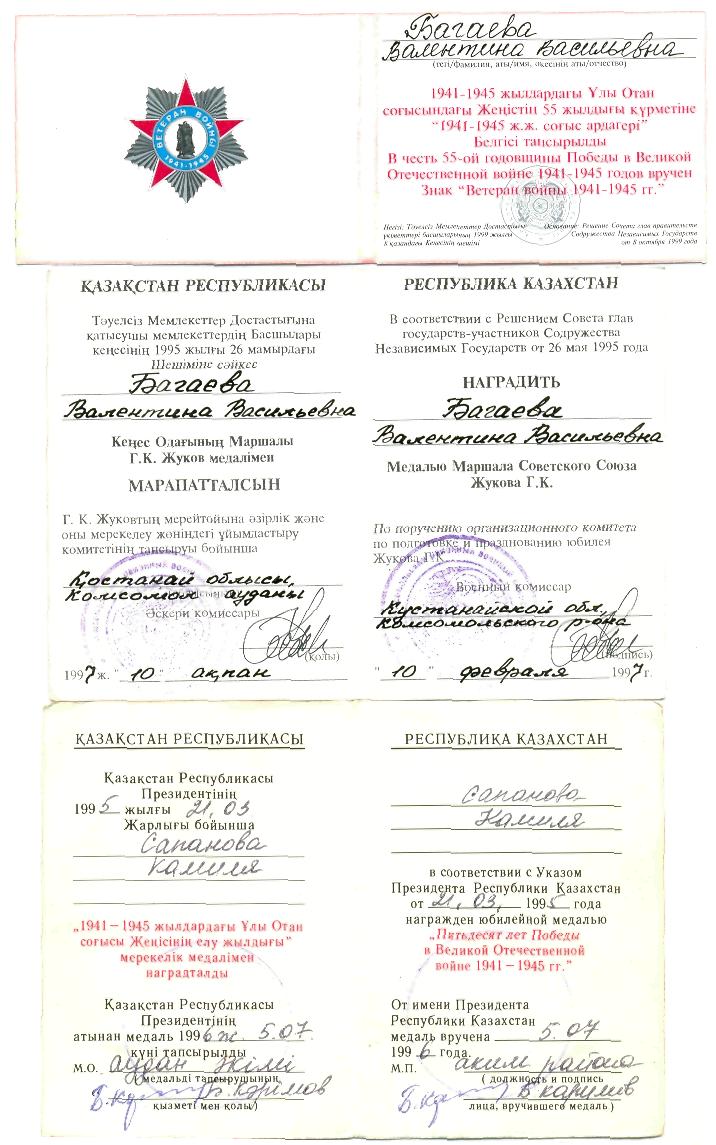 ВЕТЕРАН ВОЙНЫ
1941-1945
Багаева
Валентина Васильевна
(тегі/Фамилия, аты/имя, әкесінің аты/отчество)
1941-1945 жылдардағы Ұлы Отан
соғысындағы Жеңістің 55 жылдығы құрметіне
“1941-1945 ж.ж. соғыс ардагері”
Белгісі тапсырылды
В честь 55-ой годовщины Победы в Великой
Отечественной войне 1941-1945 годов вручен
Знак “Ветеран войны 1941-1945 гг.”
Негізі: Тәуелсіз Мемлекеттер Достастығы
үкіметтері басшыларының 1999 жылғы
8 қазандағы Кеңесінің шешімі
Основание: Решение Совета глав правительств
Содружества Независимых Государств
от 8 октября 1999 года
ҚАЗАҚСТАН РЕСПУБЛИКАСЫ
Тәуелсіз Мемлекеттер Достастығына
қатысушы мемлекеттердің Басшылары
кеңесінің 1995 жылғы 26 мамырдағы
Шешіміне сәйкес
Багаева
Валентина Васильевна
Кеңес Одағының Маршалы
Г.К. Жуков медалімен
МАРАПАТТАЛСЫН
Г. К. Жуковтың мерейтойына әзірлік және
оны мерекелеу жөніндегі ұйымдастыру
комитетінің тапсыруы бойынша
Қостанай облысы,
Комсомол ауданы
Әскери комиссары
(қолы)
1997 ж. "10" ақпан
РЕСПУБЛИКА КАЗАХСТАН
В соответствии с Решением Совета глав
государств-участников Содружества
Независимых Государств от 26 мая 1995 года
НАГРАДИТЬ
Багаева
Валентина Васильевна
Медалью Маршала Советского Союза
Жукова Г.К.
По поручению организационного комитета
по подготовке и празднованию юбилея
Жукова Г.К.
Военный комиссар
Кустанайской обл,
Комсомольского р-она
(подпись)
"10" февраля 1997 г.
ҚАЗАҚСТАН РЕСПУБЛИКАСЫ
Қазақстан Республикасы
Президентінің
1995 жылғы 21.03
Жарлығы бойынша
Сапанова
Камиля
„1941—1945 жылдардағы Ұлы Отан
соғысы Жеңісінің елу жылдығы”
мерекелік медалімен
наградталды
Қазақстан Республикасы
Президентінің
атынан медаль 1996 ж. 5.07.
күні тапсырылды
М.О. аудан әкімі
(медальді тапсырушының
Б.Кәрімов
қызметі мен қолы)
РЕСПУБЛИКА КАЗАХСТАН
Сапанова
Камиля
в соответствии с Указом
Президента Республики Казахстан
от 21.03. 1995 года
награжден юбилейной медалью
„Пятьдесят лет Победы
в Великой Отечественной
войне 1941—1945 гг.”
От имени Президента
Республики Казахстан
медаль вручена 5.07
1996 года.
М.П. аким района
(должность и подпись
Б Каримов
лица, вручившего медаль)